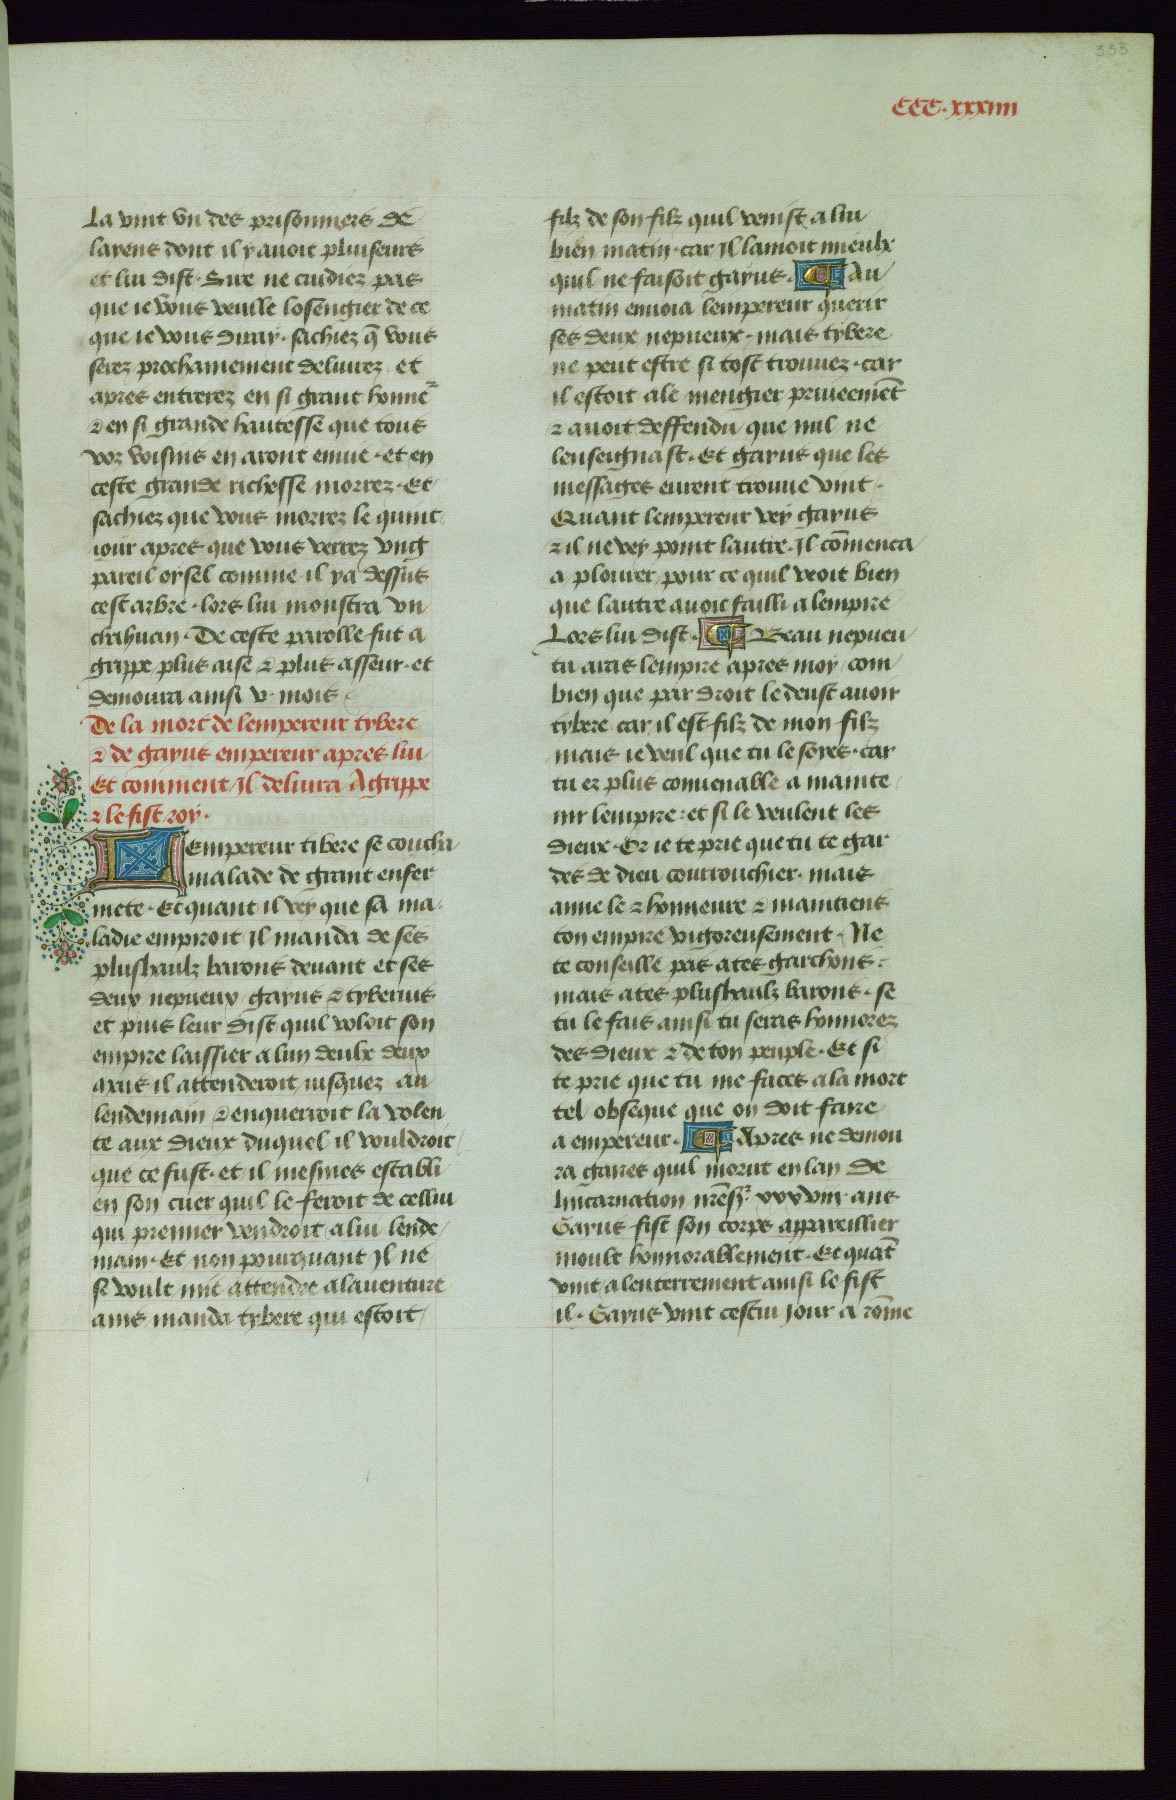 333
CCC.xxxiiii
La vint vn des prisonniers de
laiens dont il y auoit pluiseurs
et lui dist. Sire ne cuidiez pas
que ie vous veulle losengier de ce
que ie vous diray. sachiez q̄ vous
serez prochainement deliurez et
apres entrerez en si grant honne᷑
⁊ en si grande hautesse que tous
voz voisins en aront enuie. et en
ceste grande richesse morrez. Et
sachiez que vous morrez le quint
iour apres que vous verrez vng
pareil oysel comme il y a dessus
cest arbre. lors lui monstra vn
chahuan. De ceste parolle fut a
grippe plus aise ⁊ plus asseur. et
demoura ainsi v. mois
De la mort de lempereur tybere
⁊ de gayus empereur apres lui
Et comment Il deliura Agrippe
⁊ le fist roy.
Lempereur tibere se coucha
malade de grant enfer
mete. Et quant il vey que sa ma
ladie empiroit il manda de ses
plushaulz barons deuant et ses
deux nepueux gayus ⁊ tyberius
et puis leur dist quil voloit son
empire laissier a lun deulx deux
mais il attenderoit iusquez au
lendemain ⁊ enquerroit la volen
te aux dieux duquel il vouldroit
que ce fust. et il mesmes establi
en son cuer quil le feroit de cellui
qui premier vendroit a lui lende
main. Et non pourquant Il ne
si voult mie attendre a lauenture
ains manda tybere qui estoit
filz de son filz quil venist a lui
bien matin. car Il lamoit mieulx
quil ne faisoit gayus. Au
matin enuoia lempereur querir
ses deux nepueux. mais tybere
ne peut estre si tost trouuez. car
il estoit ale mengier priueemēt
⁊ auoit deffendu que nul ne
lenseignast. Et gayus que les
messages eurent trouue vint.
Quant lempereur vey gayus
⁊ il ne vey point lautre. Il cōmenca
a plourer pour ce quil veoit bien
que lautre auoit failli a lempire
Lors lui dist. Beau nepueu
tu aras lempire apres moy com
bien que par droit le deust auoir
tybere car il est filz de mon filz
mais ie veul que tu le soyes. car
tu es plus conuenable a mainte
nir lempire: et si le veulent les
dieux. Or ie te prie que tu te gar
des de dieu courrouchier. mais
aime le ⁊ honneure ⁊ maintiens
ton empire vigoreusement. Ne
te conseille pas a tes garchons:
mais a tes plushaulz barons. se
tu le fais ainsi tu seras honnorez
des dieux ⁊ de ton peuple. Et si
te prie que tu me faces a la mort
tel obseque que on doit faire
a empereur. Apres ne demou
ra gaires quil morut en lan de
lincarnation nr̄e sr̄. xxxviii. ans
Gayus fist son corps appareillier
moult honnorablement. Et quāt
vint a lenterrement ainsi le fist
il. Gayus vint cestui jour a rōme